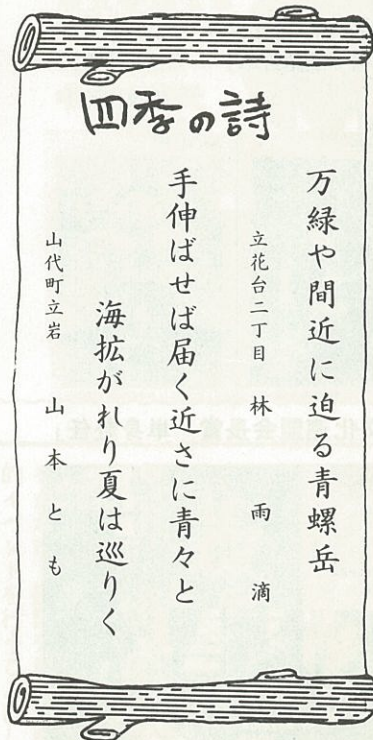 四季の詩
万緑や間近に迫る青螺岳
立花台二丁目 林 雨滴
手伸ばせば届く近さに青々と
海拡がれり夏は巡りく
山代町立岩 山本とも